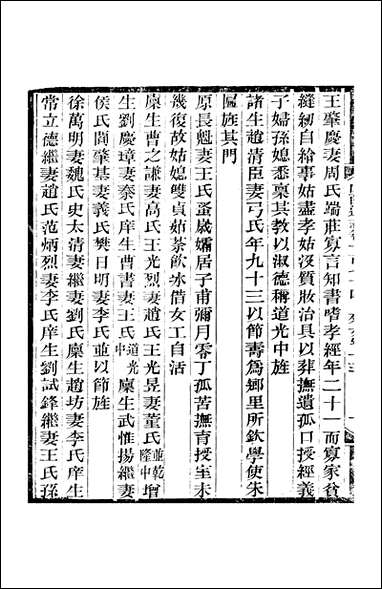 王肇慶妻周氏端莊寡言知書嗜孝經年二十一而寡家貧
縫紉自給事姑盡孝姑沒質妝治具以葬撫遺孤口授經義
子婦孫媳悉稟其教以淑德稱道光中旌
諸生趙清臣妻弓氏年九十三以節壽爲鄉里所欽學使朱
匾旌其門
原長魁妻王氏蚤歲孀居子甫彌月零丁孤苦撫育授室未
幾復故姑媳雙貞茹茶飲水借女工自活
廩生曹之謙妻高氏王光烈妻趙氏王光昱妻董氏並乾隆中增
生劉慶璋妻秦氏庠生曹書妻王氏道光中廩生武惟揚繼妻
侯氏閻肇基妻義氏樊日明妻李氏並以節旌
徐萬明妻魏氏史太清妻繼妻劉氏廩生趙坊妻李氏庠生
常立德繼妻趙氏范炳烈妻李氏庠生劉試鋒繼妻王氏孫